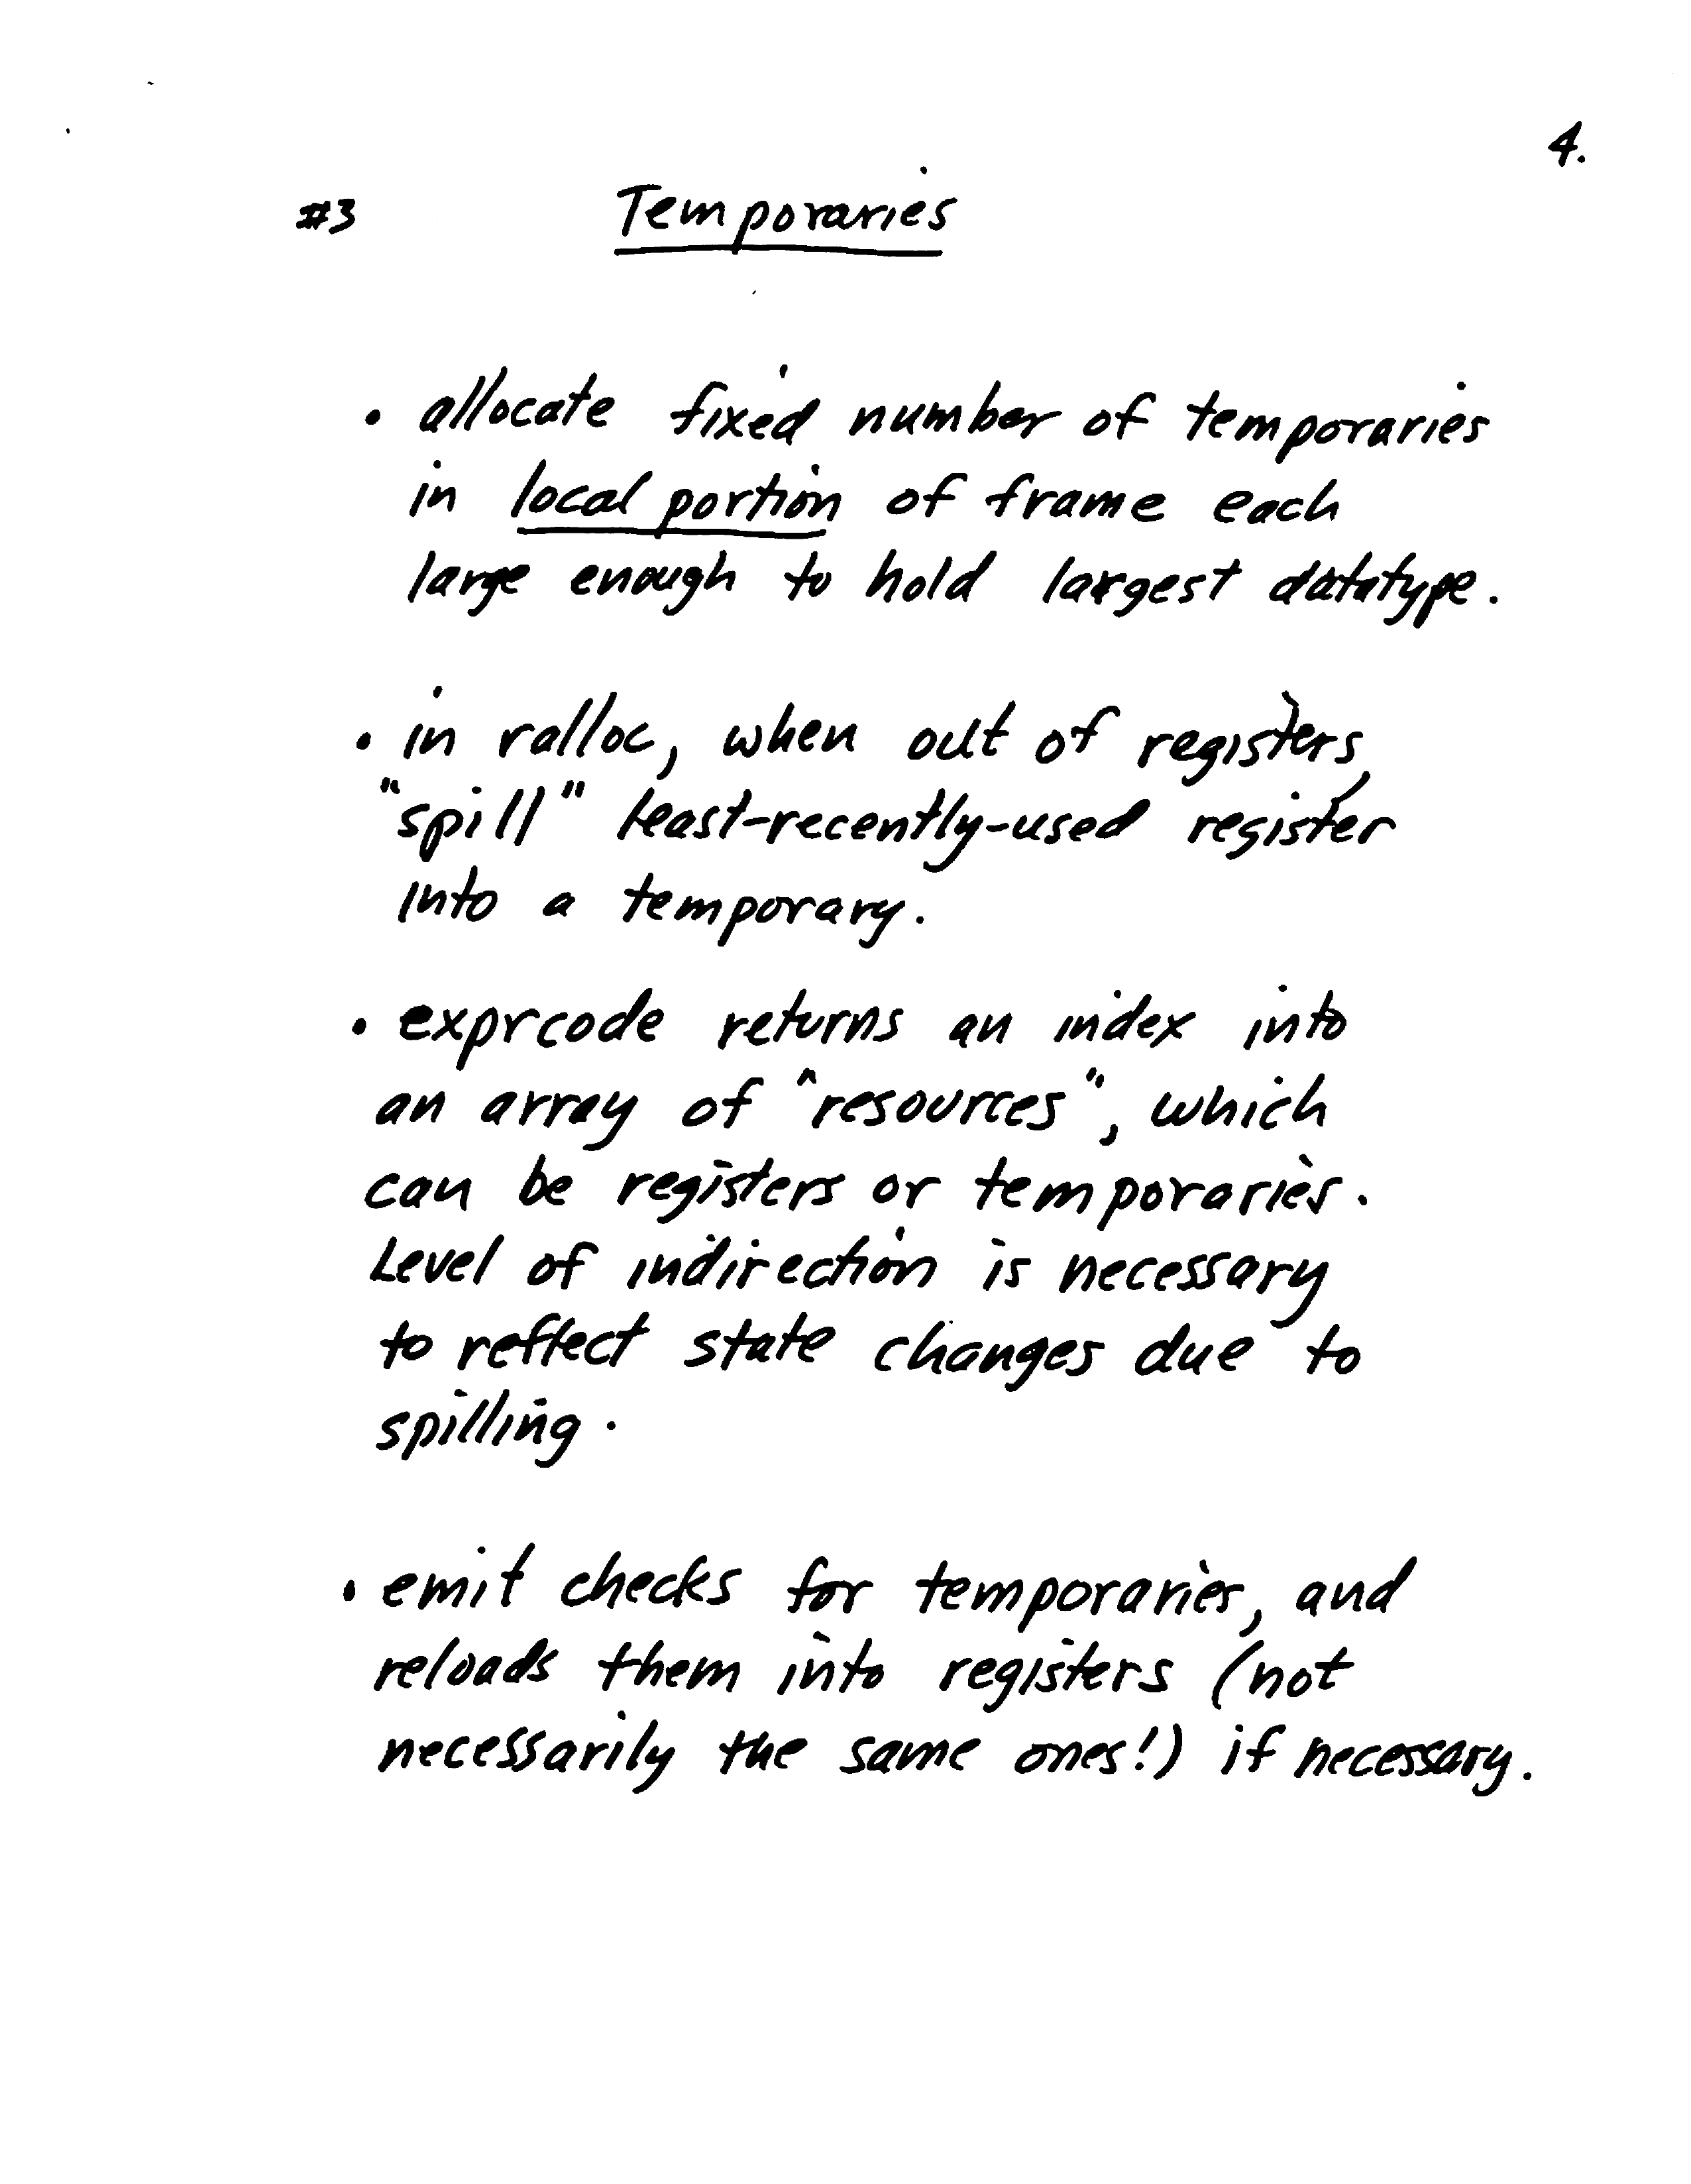 4.
#3 Temporaries
• allocate fixed number of temporaries
in local portion of frame each
large enough to hold largest datatype.
• in ralloc, when out of registers,
"spill" least-recently-used register
into a temporary.
• exprcode returns an index into
an array of "resources", which
can be registers or temporaries.
Level of indirection is necessary
to reflect state changes due to
spilling.
• emit checks for temporaries, and
reloads them into registers (not
necessarily the same ones!) if necessary.